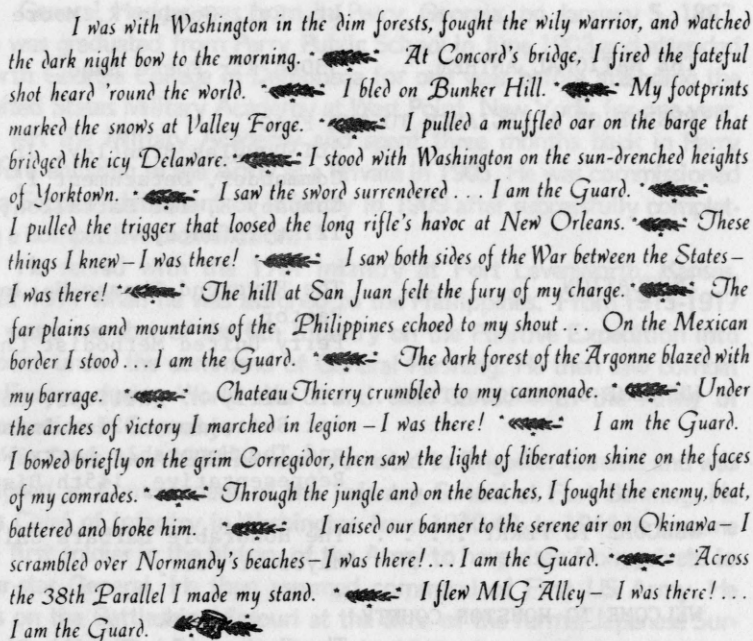 I was with Washington in the dim forests, fought the wily warrior, and watched
the dark night bow to the morning. At Concord's bridge, I fired the fateful
shot heard 'round the world. I bled on Bunker Hill. My footprints
marked the snows at Valley Forge. I pulled a muffled oar on the barge that
bridged the icy Delaware. I stood with Washington on the sun-drenched heights
of Yorktown. I saw the sword surrendered .... I am the Guard.
I pulled the trigger that loosed the long rifle's havoc at New Orleans. These
things I knew – I was there! I saw both sides of the War between the States –
I was there! The hill at San Juan felt the fury of my charge. The
far plains and mountains of the Philippines echoed to my shout ... On the Mexican
border I stood ... I am the Guard. The dark forest of the Argonne blazed with
my barrage. Chateau Thierry crumbled to my cannonade. Under
the arches of victory I marched in legion – I was there! I am the Guard.
I bowed briefly on the grim Corregidor, then saw the light of liberation shine on the faces
of my comrades. Through the jungle and on the beaches, I fought the enemy, beat,
battered and broke him. I raised our banner to the serene air on Okinawa – I
scrambled over Normandy's beaches – I was there! ... I am the Guard. Across
the 38th Parallel I made my stand. I flew MIG Alley – I was there! ...
I am the Guard.